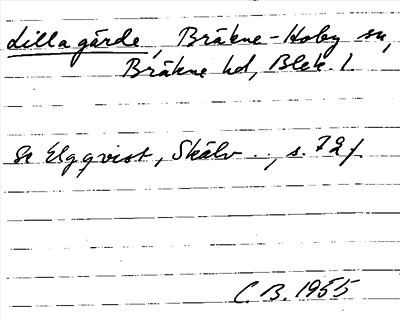 Lillagärde, Bräkne-Hoby sn,
Bräkne hd, Blek. l.
Se Elgqvist, Skälv .., s. 72 f.
C. B. 1955